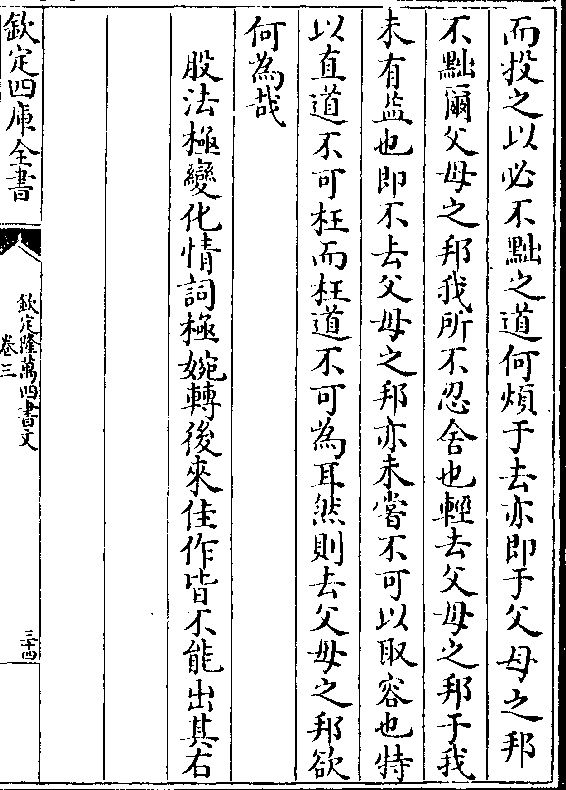 而投之以必不黜之道何煩于去亦即于父母之邦
不黜爾父母之邦我所不忍舍也輕去父母之邦于我
未有益也即不去父母之邦亦未嘗不可以取容也特
以直道不可枉而枉道不可為耳然則去父母之邦欲
何為哉
股法極變化情詞極婉轉後來佳作皆不能出其右
欽定四庫全書
欽定隆萬四書文
卷三
三十四